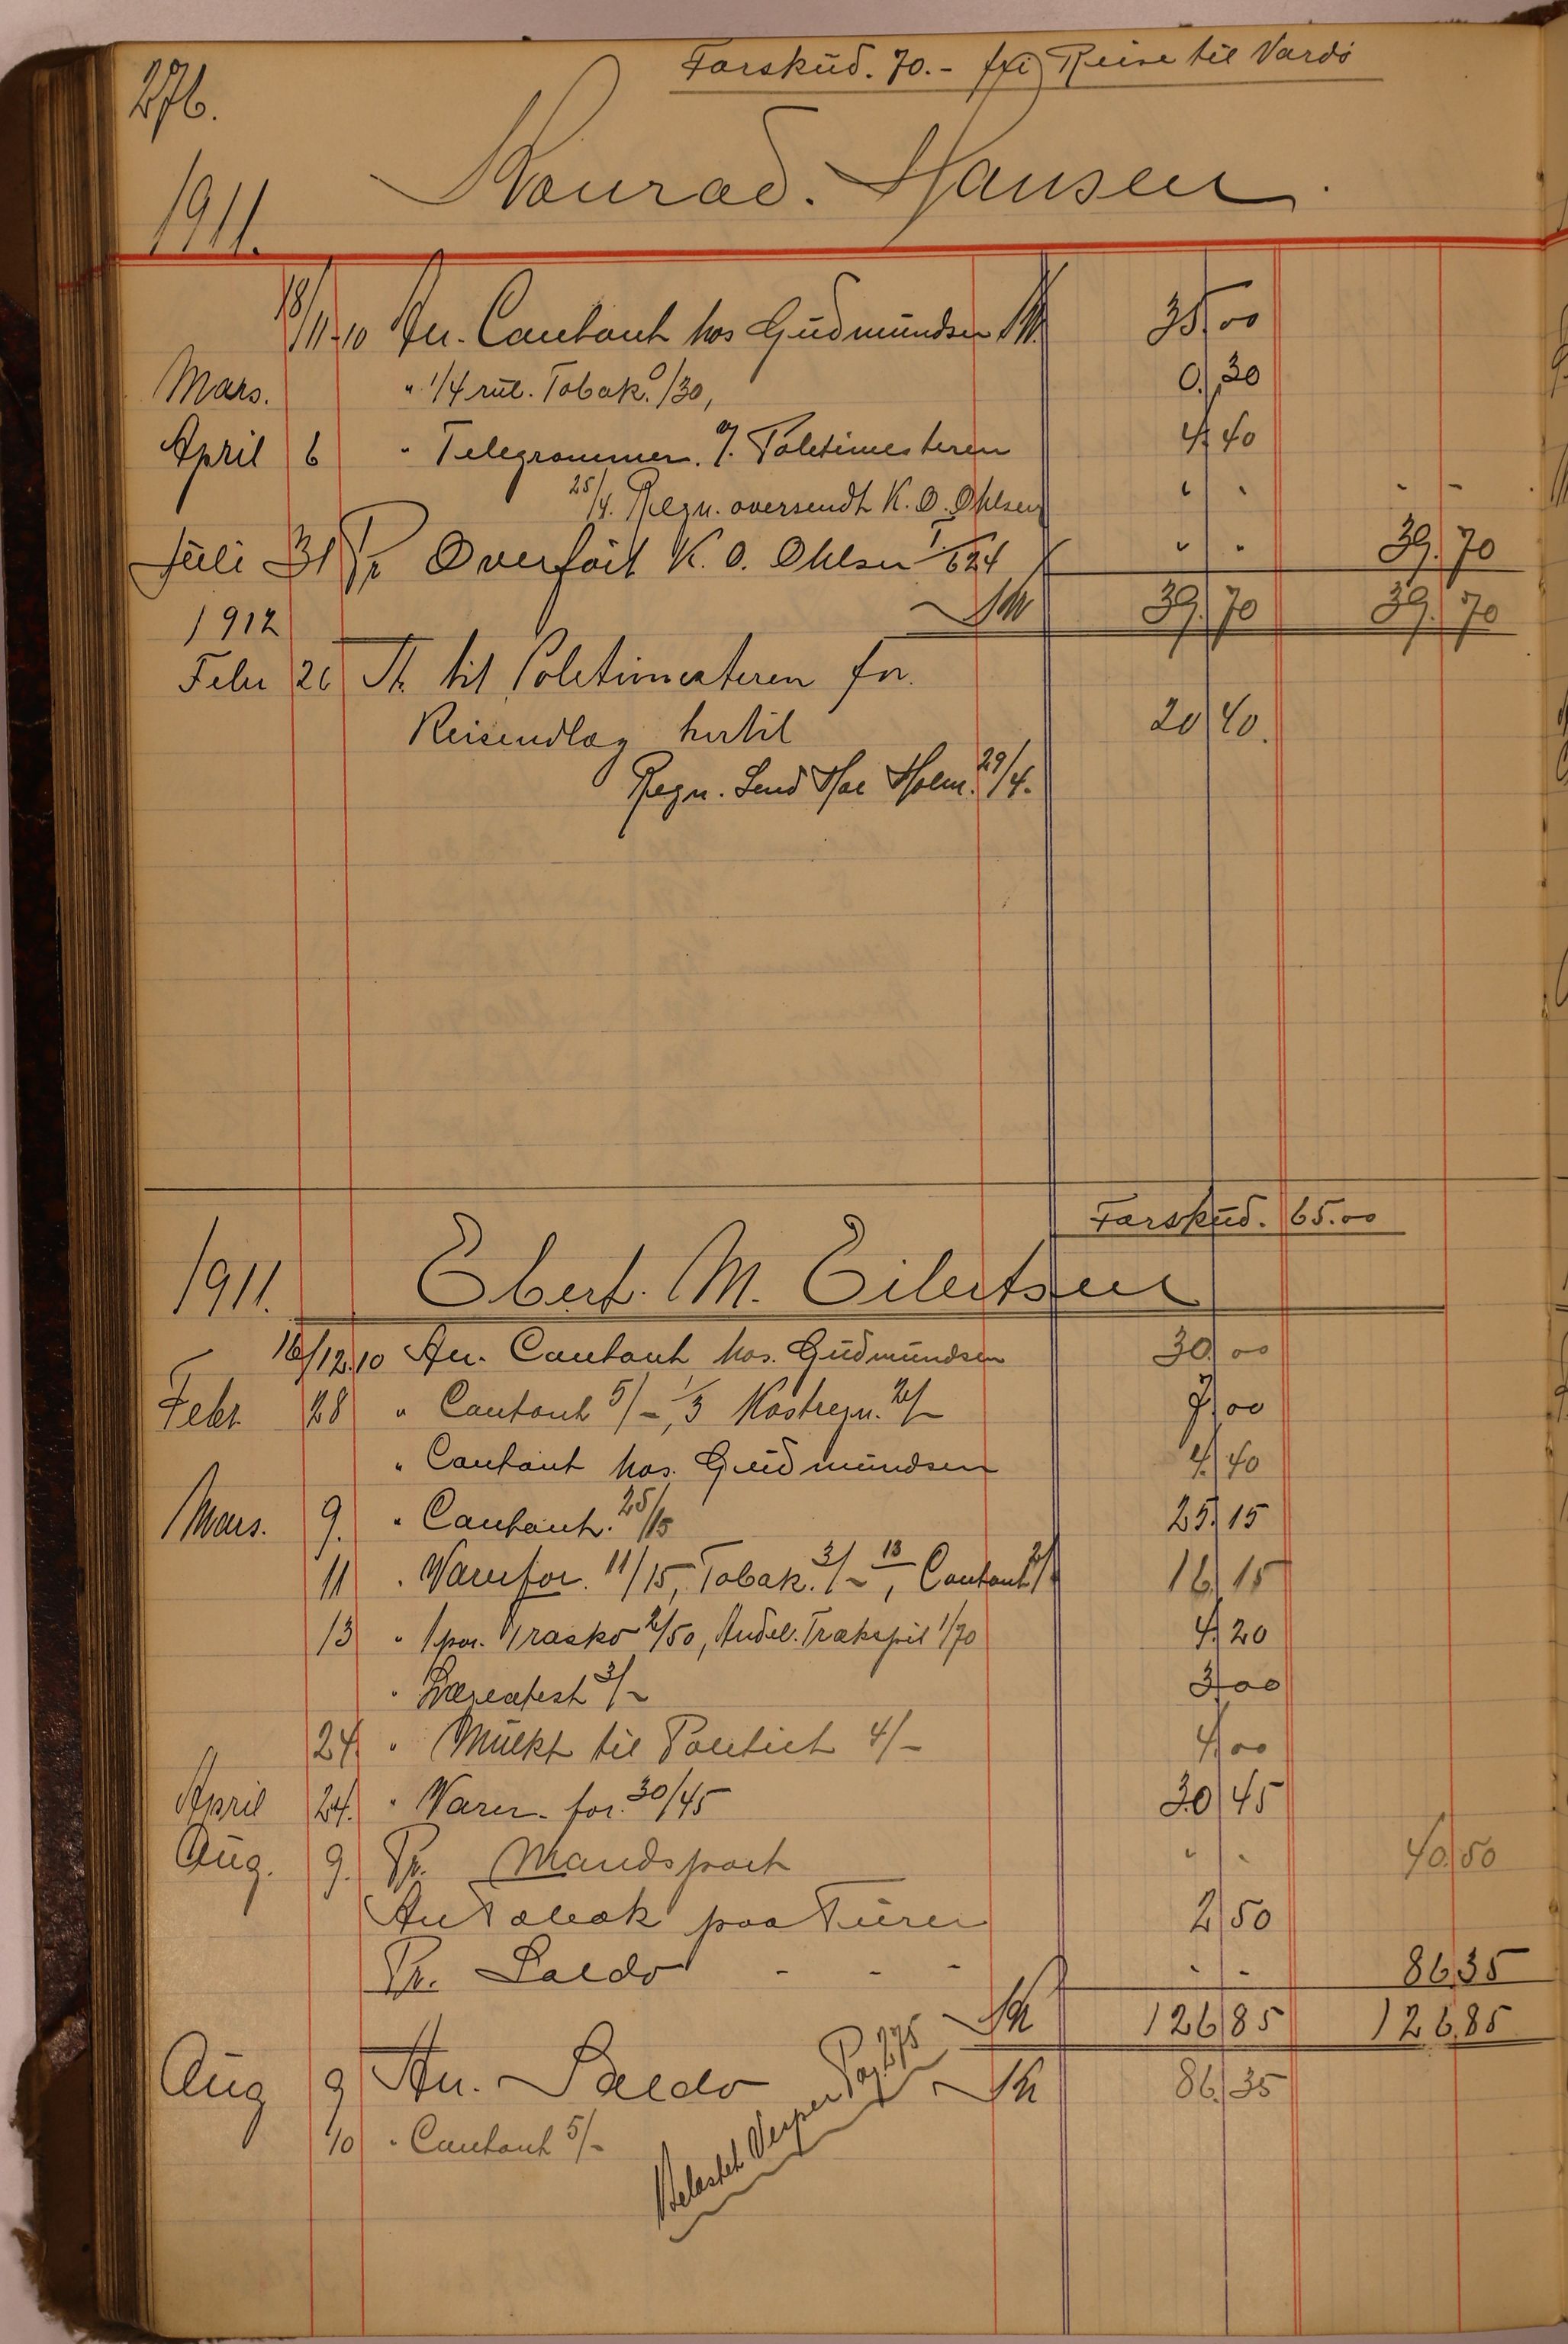 276.
Forskud. 70.- fri Reise til Vardö
1911. Konrad. Hansen.
18/11-10 An. Contant hos Gudmundsen Kr. 35 00
Mars. " 1/4 rul. Tobak. 0/30, 0,30
April 6 " Telegrammer. Poletimesteren 4 40
25/4. Regn. oversendt K. O. Ohlsen " " - -
Juli 31 Pr Overfört K. O. Ohlsen 1/624 " " 39.70
Kr 39.70 39.70
1912
Febr 26 An til Poletimesteren for.
Reiseudlæg hertil 20 40.
Regn. Send Holm. 29/4.
Forskud. 65.00
1911. Ebert. M. Eilertsen
16/12.10 An. Contant hos. Gudmundsen 30.00
Febr. 28 " Contant 5/-, 1/3 Kostregn. 2/- 7.00
" Contant hos. Gudmundsen 4.40
Mars. 9. " Contant. 25/15 25.15
11 " Varer for. 11/15, Tobak. 3/- 13, Contant 2/- 16.15
13 " 1 par. Træsko 2/50, Andel. Trækspil 1/70 4.20
" 3/- 3.00
24 " Mulkt til Politiet 4/- 4.00
April 24. " Varer. for. 30/45 30 45
Aug. 9. Pr. Mandspart " " 40.50
An Tobak paa Turen 2 50
Pr. Saldo - - - - - 86 35
Kr 126 85 126.85
Aug 9 An. Saldo Kr 86.35
10 " Contant 5/-
Belastet Vesper Pag 275